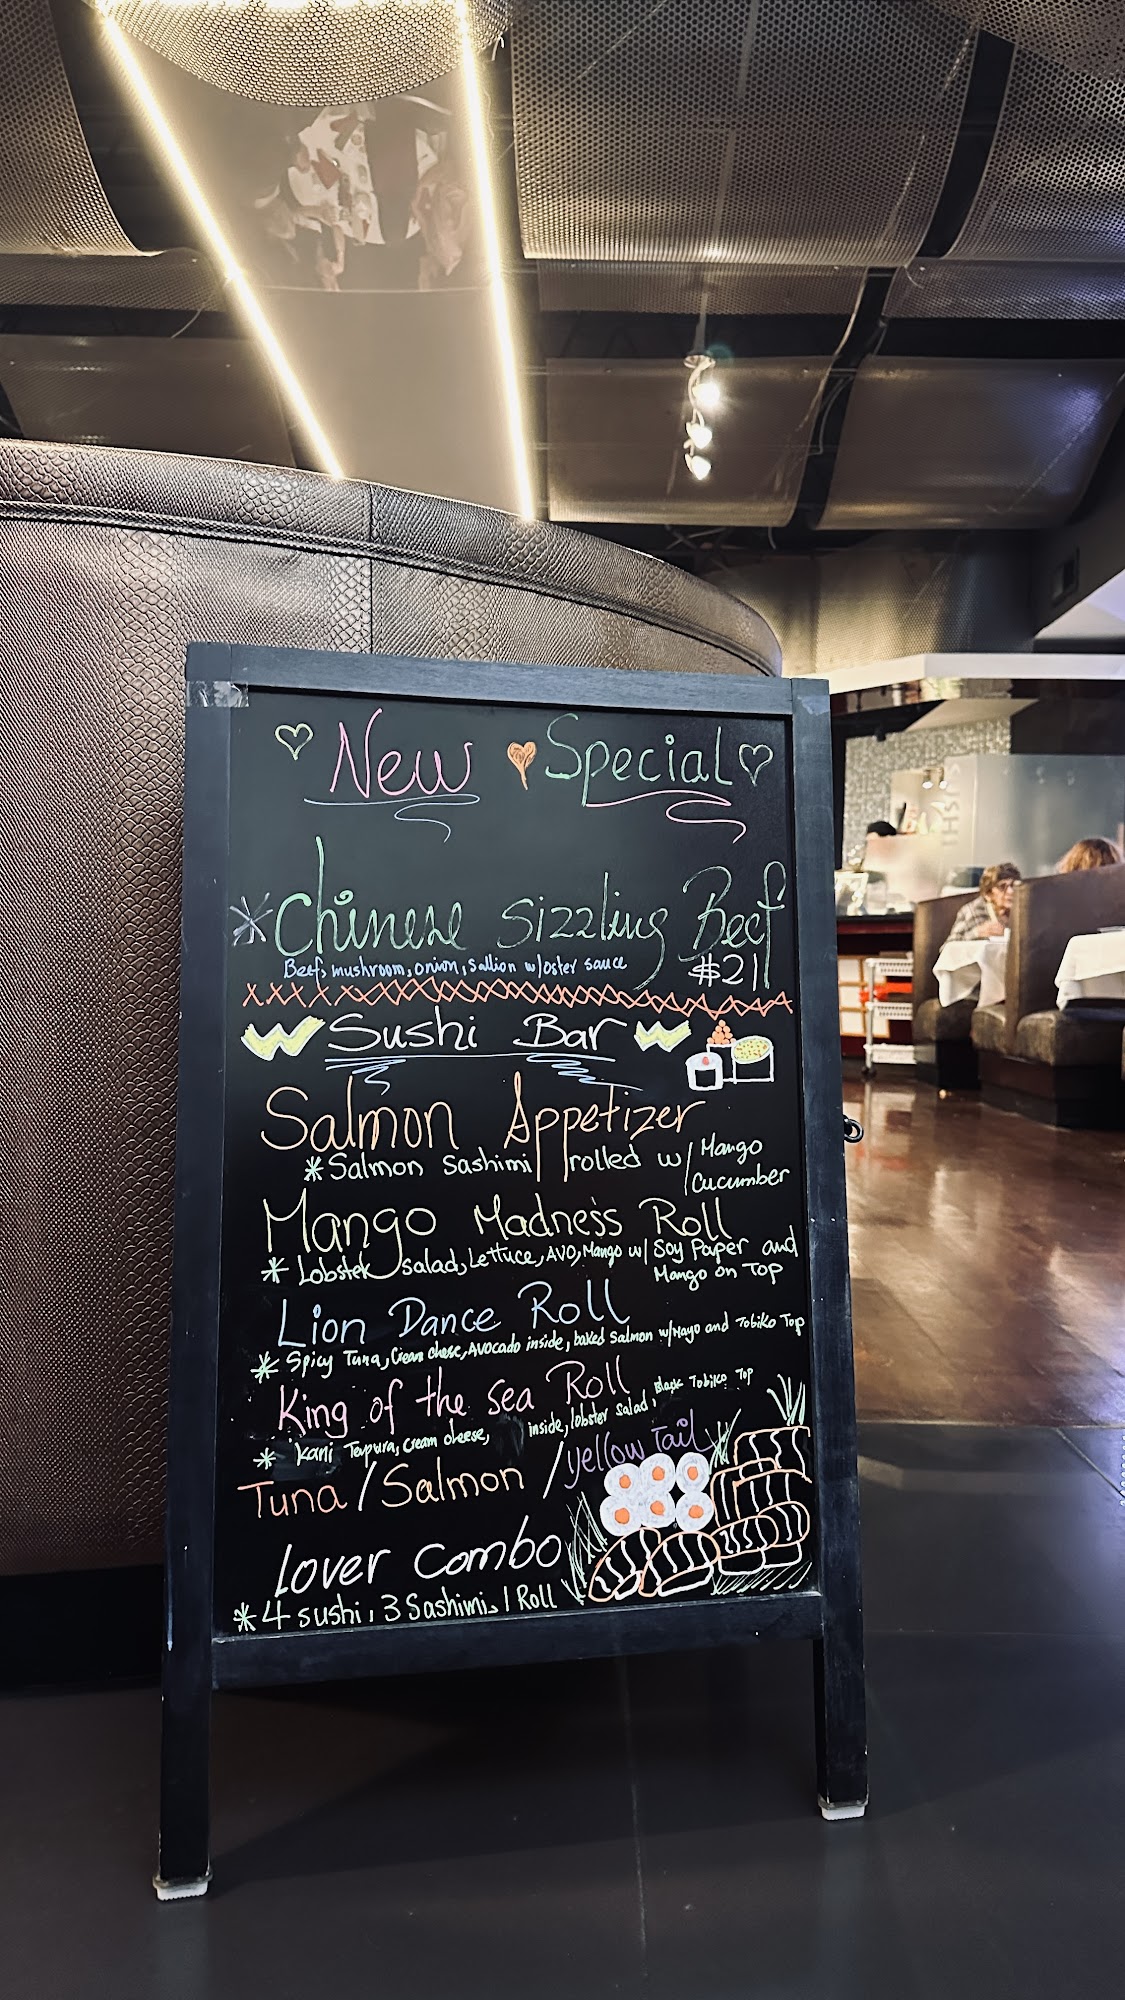 New Special
Chinese Sizzling Beef
Beef, mushroom, onion, Sallion w/oster sauce
$21
Sushi Bar
Salmon Appetizer
*Salmon Sashimi rolled w/ Mango
Cucumber
Mango Madness Roll
* Lobster salad, Lettuce, AVO, Mango w/ Soy Paper and
Mango on Top
Lion Dance Roll
* Spicy Tuna, Cream chese, Avocado inside, baked Salmon w/Mayo and Tobiko Top
King of the Sea Roll
* Kani Tenpura, Cream cheese, inside, lobster Salad, Black Tobiko Top
Tuna / Salmon / yellow Tail
Lover Combo
*4 sushi, 3 Sashimi, 1 Roll